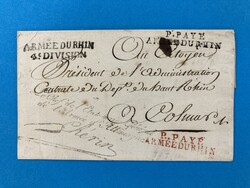 ARMÉE DU RHIN
4E DIVISION
P. PAYÉ
ARMÉE DU RHIN
Au Citoyen
Président de l'administration
Centrale du Dépt. du haut Rhin
à Colmar
P. PAYÉ
ARMÉE DU RHIN